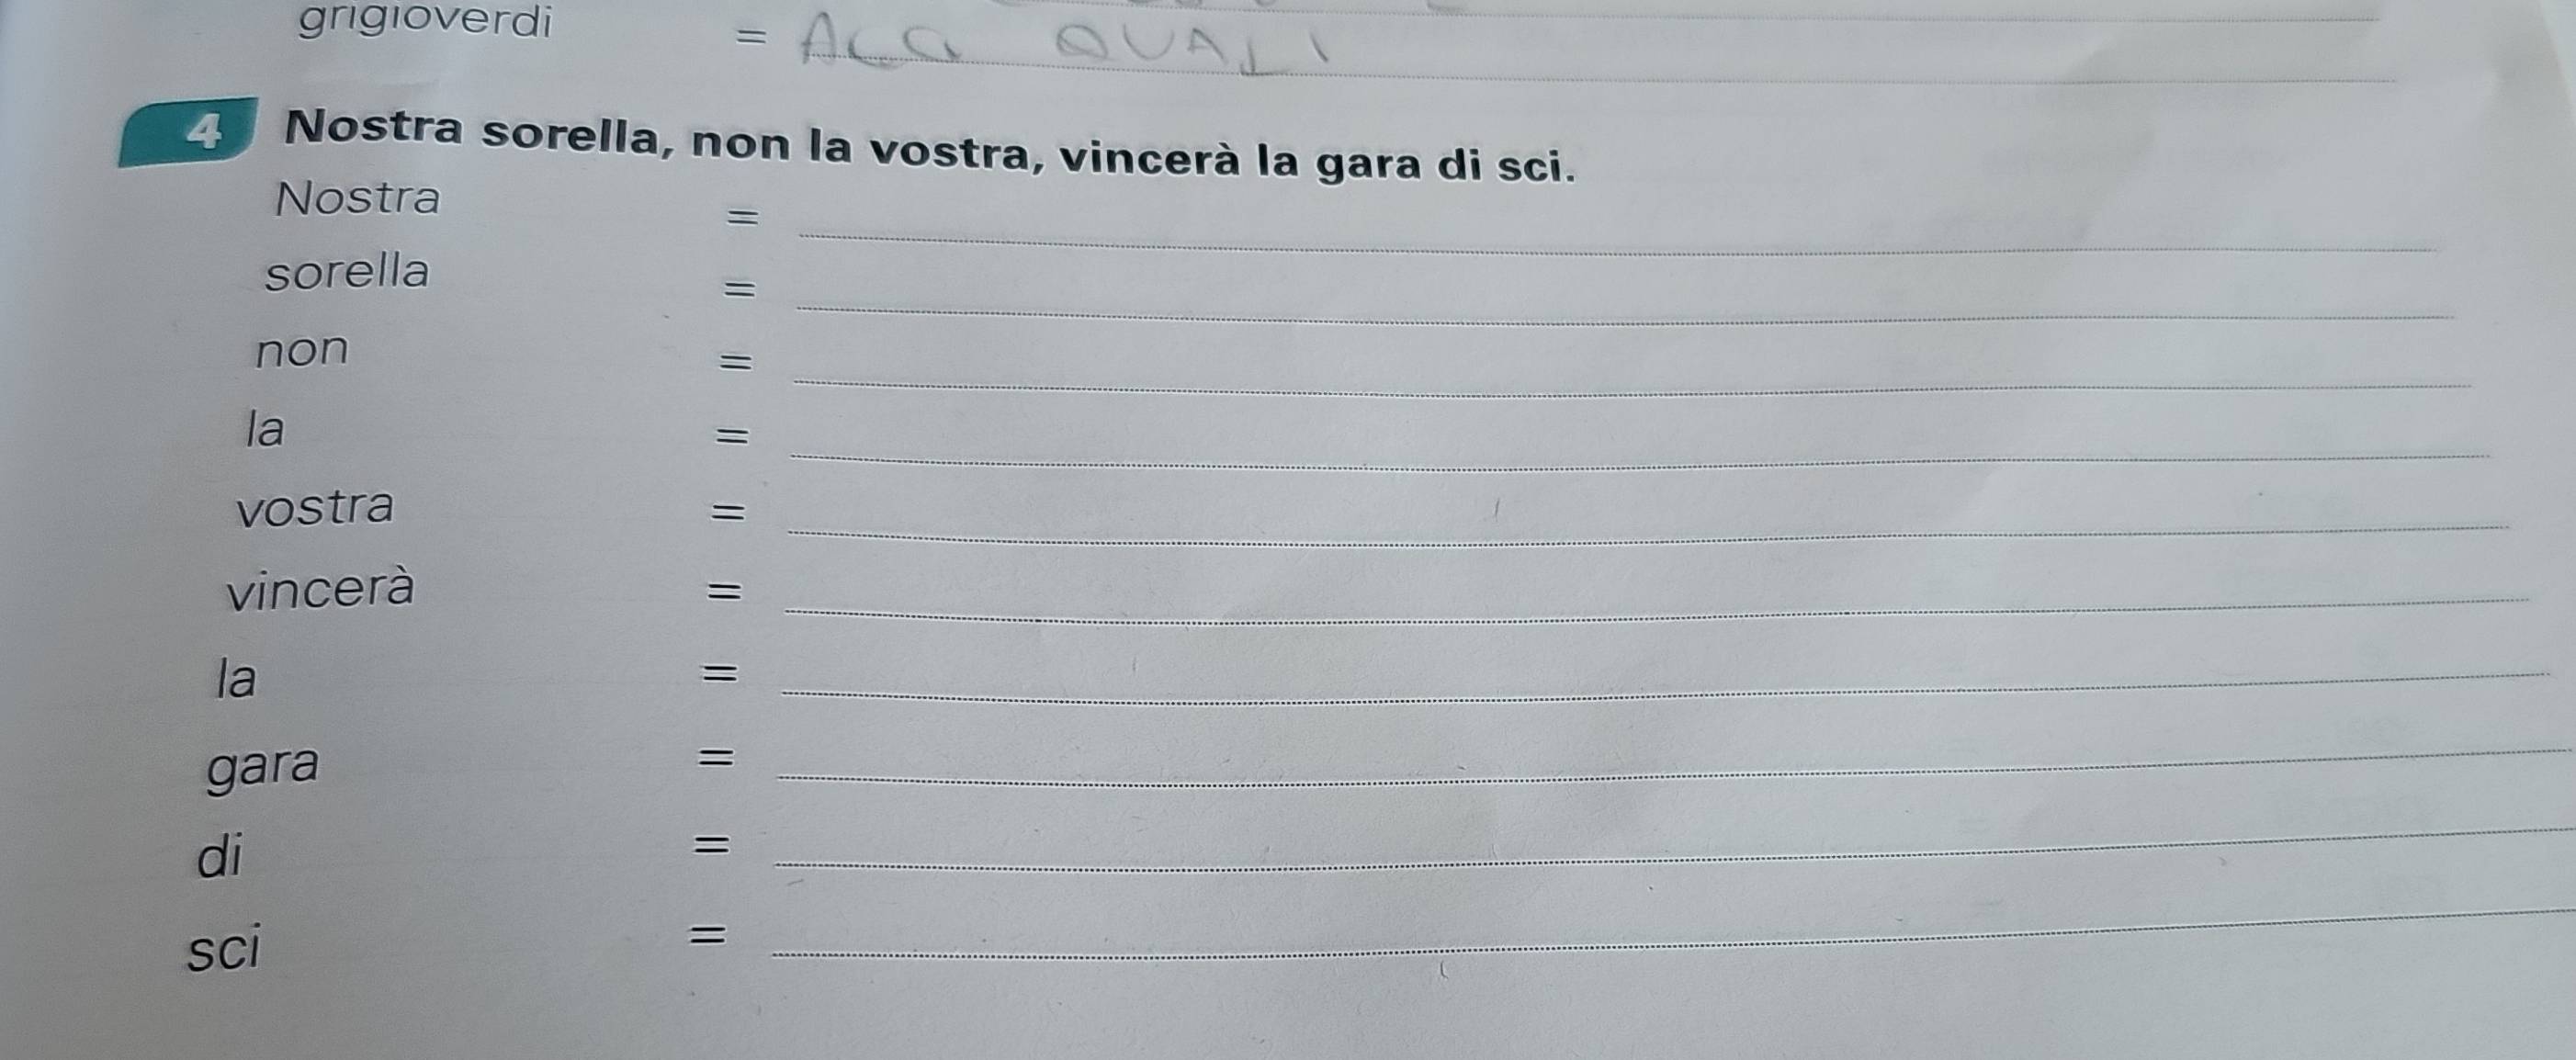 grigioverdi = AGG QUALI
4 Nostra sorella, non la vostra, vincerà la gara di sci.
Nostra =
sorella =
non =
la =
vostra =
vincerà =
la =
gara =
di =
sci =